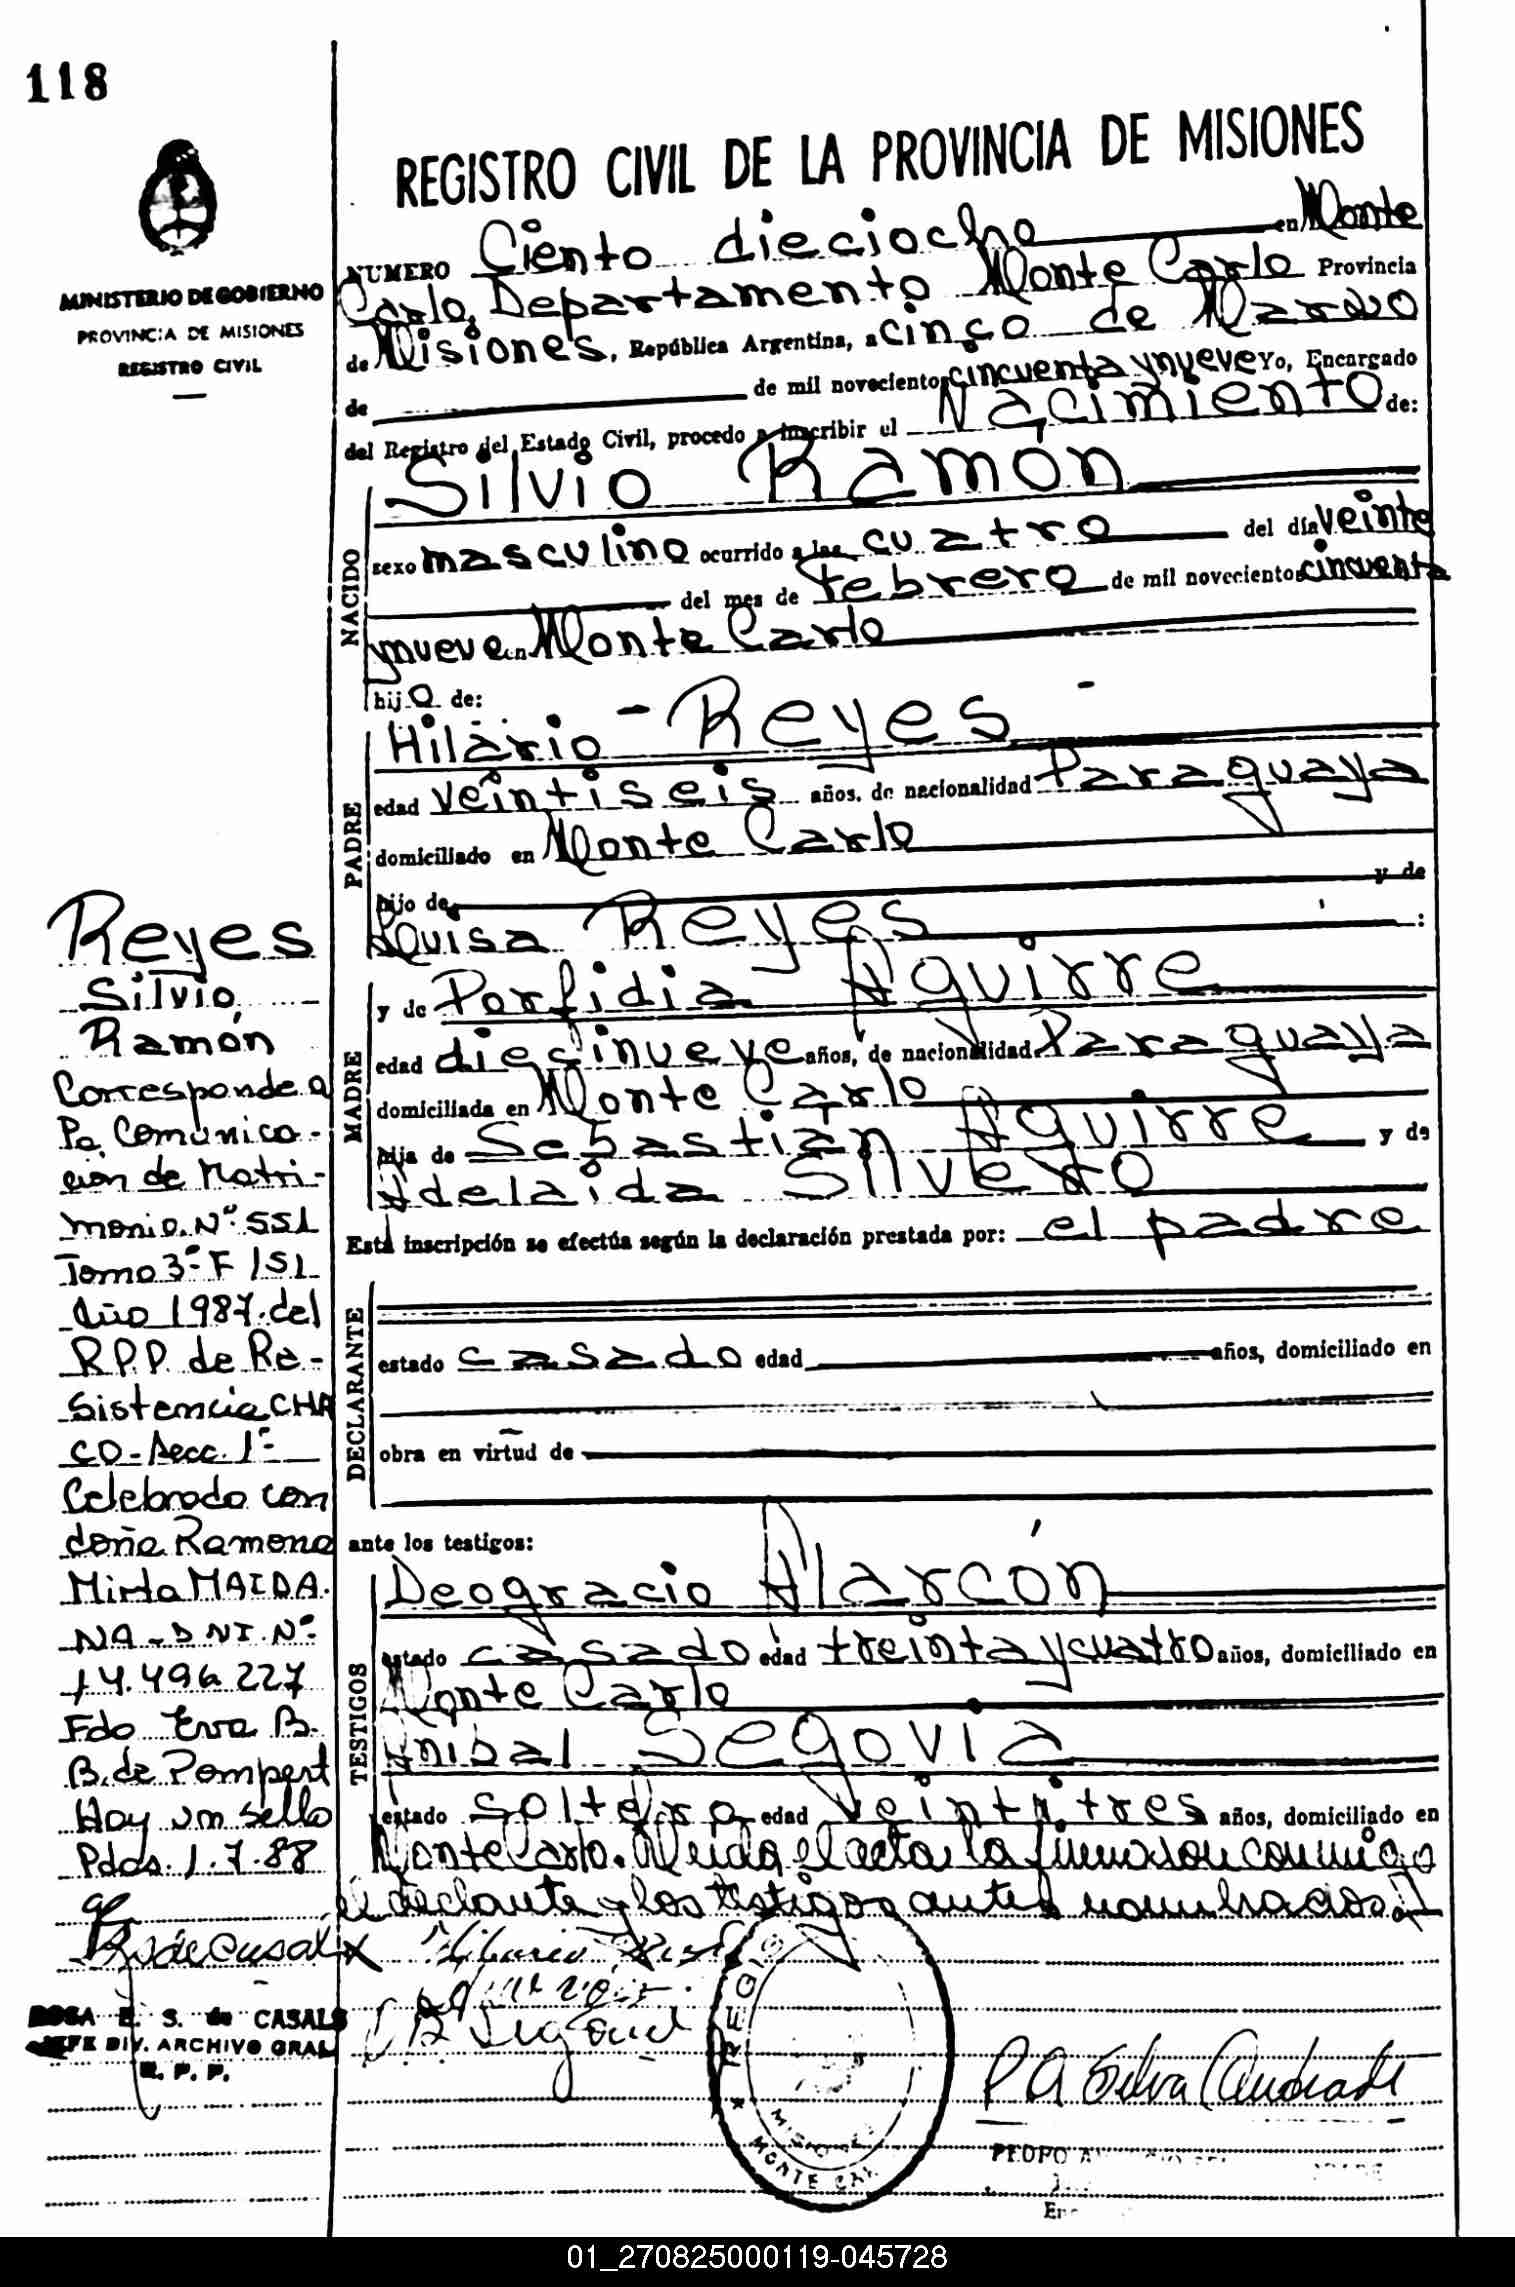 118
MINISTERIO DE GOBIERNO
PROVINCIA DE MISIONES
REGISTRO CIVIL
REGISTRO CIVIL DE LA PROVINCIA DE MISIONES
NUMERO Ciento dieciocho en Monte
Carlo, Departamento Monte Carlo Provincia
de Misiones, República Argentina, a cinco de Marzo
de de mil novecientos cincuenta y nueve Yo, Encargado
del Registro del Estado Civil, procedo a inscribir el Nacimiento de:
Silvio Ramón
NACIDO
sexo masculino ocurrido a las cuatro del día veinte
del mes de febrero de mil novecientos cincuenta
y nueve en Monte Carlo
hijo de:
Hilario - Reyes -
PADRE
edad veintiseis años, de nacionalidad Paraguaya
domiciliado en Monte Carlo
hijo de y de
Luisa Reyes :
y de Porfidia Aguirre
MADRE
edad diecinueve años, de nacionalidad Paraguaya
domiciliada en Monte Carlo
hija de Sebastián Aguirre y de
Adelaida Silvero
Esta inscripción se efectúa según la declaración prestada por: el padre
DECLARANTE
estado casado edad años, domiciliado en
obra en virtud de
ante los testigos:
Deogracio Alarcón
TESTIGOS
estado casado edad treinta y cuatro años, domiciliado en
Monte Carlo
Anibal Segovia
estado soltero edad veintitres años, domiciliado en
Monte Carlo. Leida el acta, la firmaron conmigo
el declante y los testigos antes nombrados.
Reyes
Silvio,
Ramón
Corresponde a
Pa. Comunica-
ción de Matri-
monio. Nº 551
Tomo 3º F 151
Año 1987. del
R.P.P. de Re-
sistencia CHA
CO - Secc. 1º
Celebrado con
doña Ramona
Mirta MAIDA-
NA - DNI. Nº
14.496.227
Fdo Eva B.
B. de Pompert
Hay un sello
Pdas. 1.7.88
ROSA E. S. de CASALS
JEFE DIV. ARCHIVO GRAL
R. P. P.
REGIS
MISIONES
MONTE CAR
P A Silva Andrade
PEDRO A
01_270825000119-045728